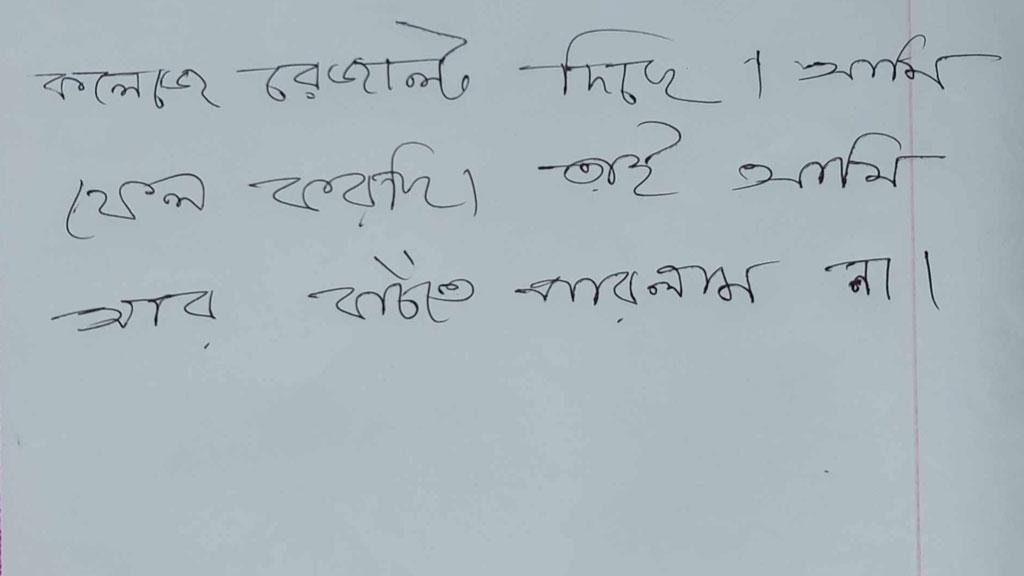 কলেজে রেজাল্ট দিছে। আমি
ফেল করছি। তাই আমি
আর বাঁচতে পারলাম না।